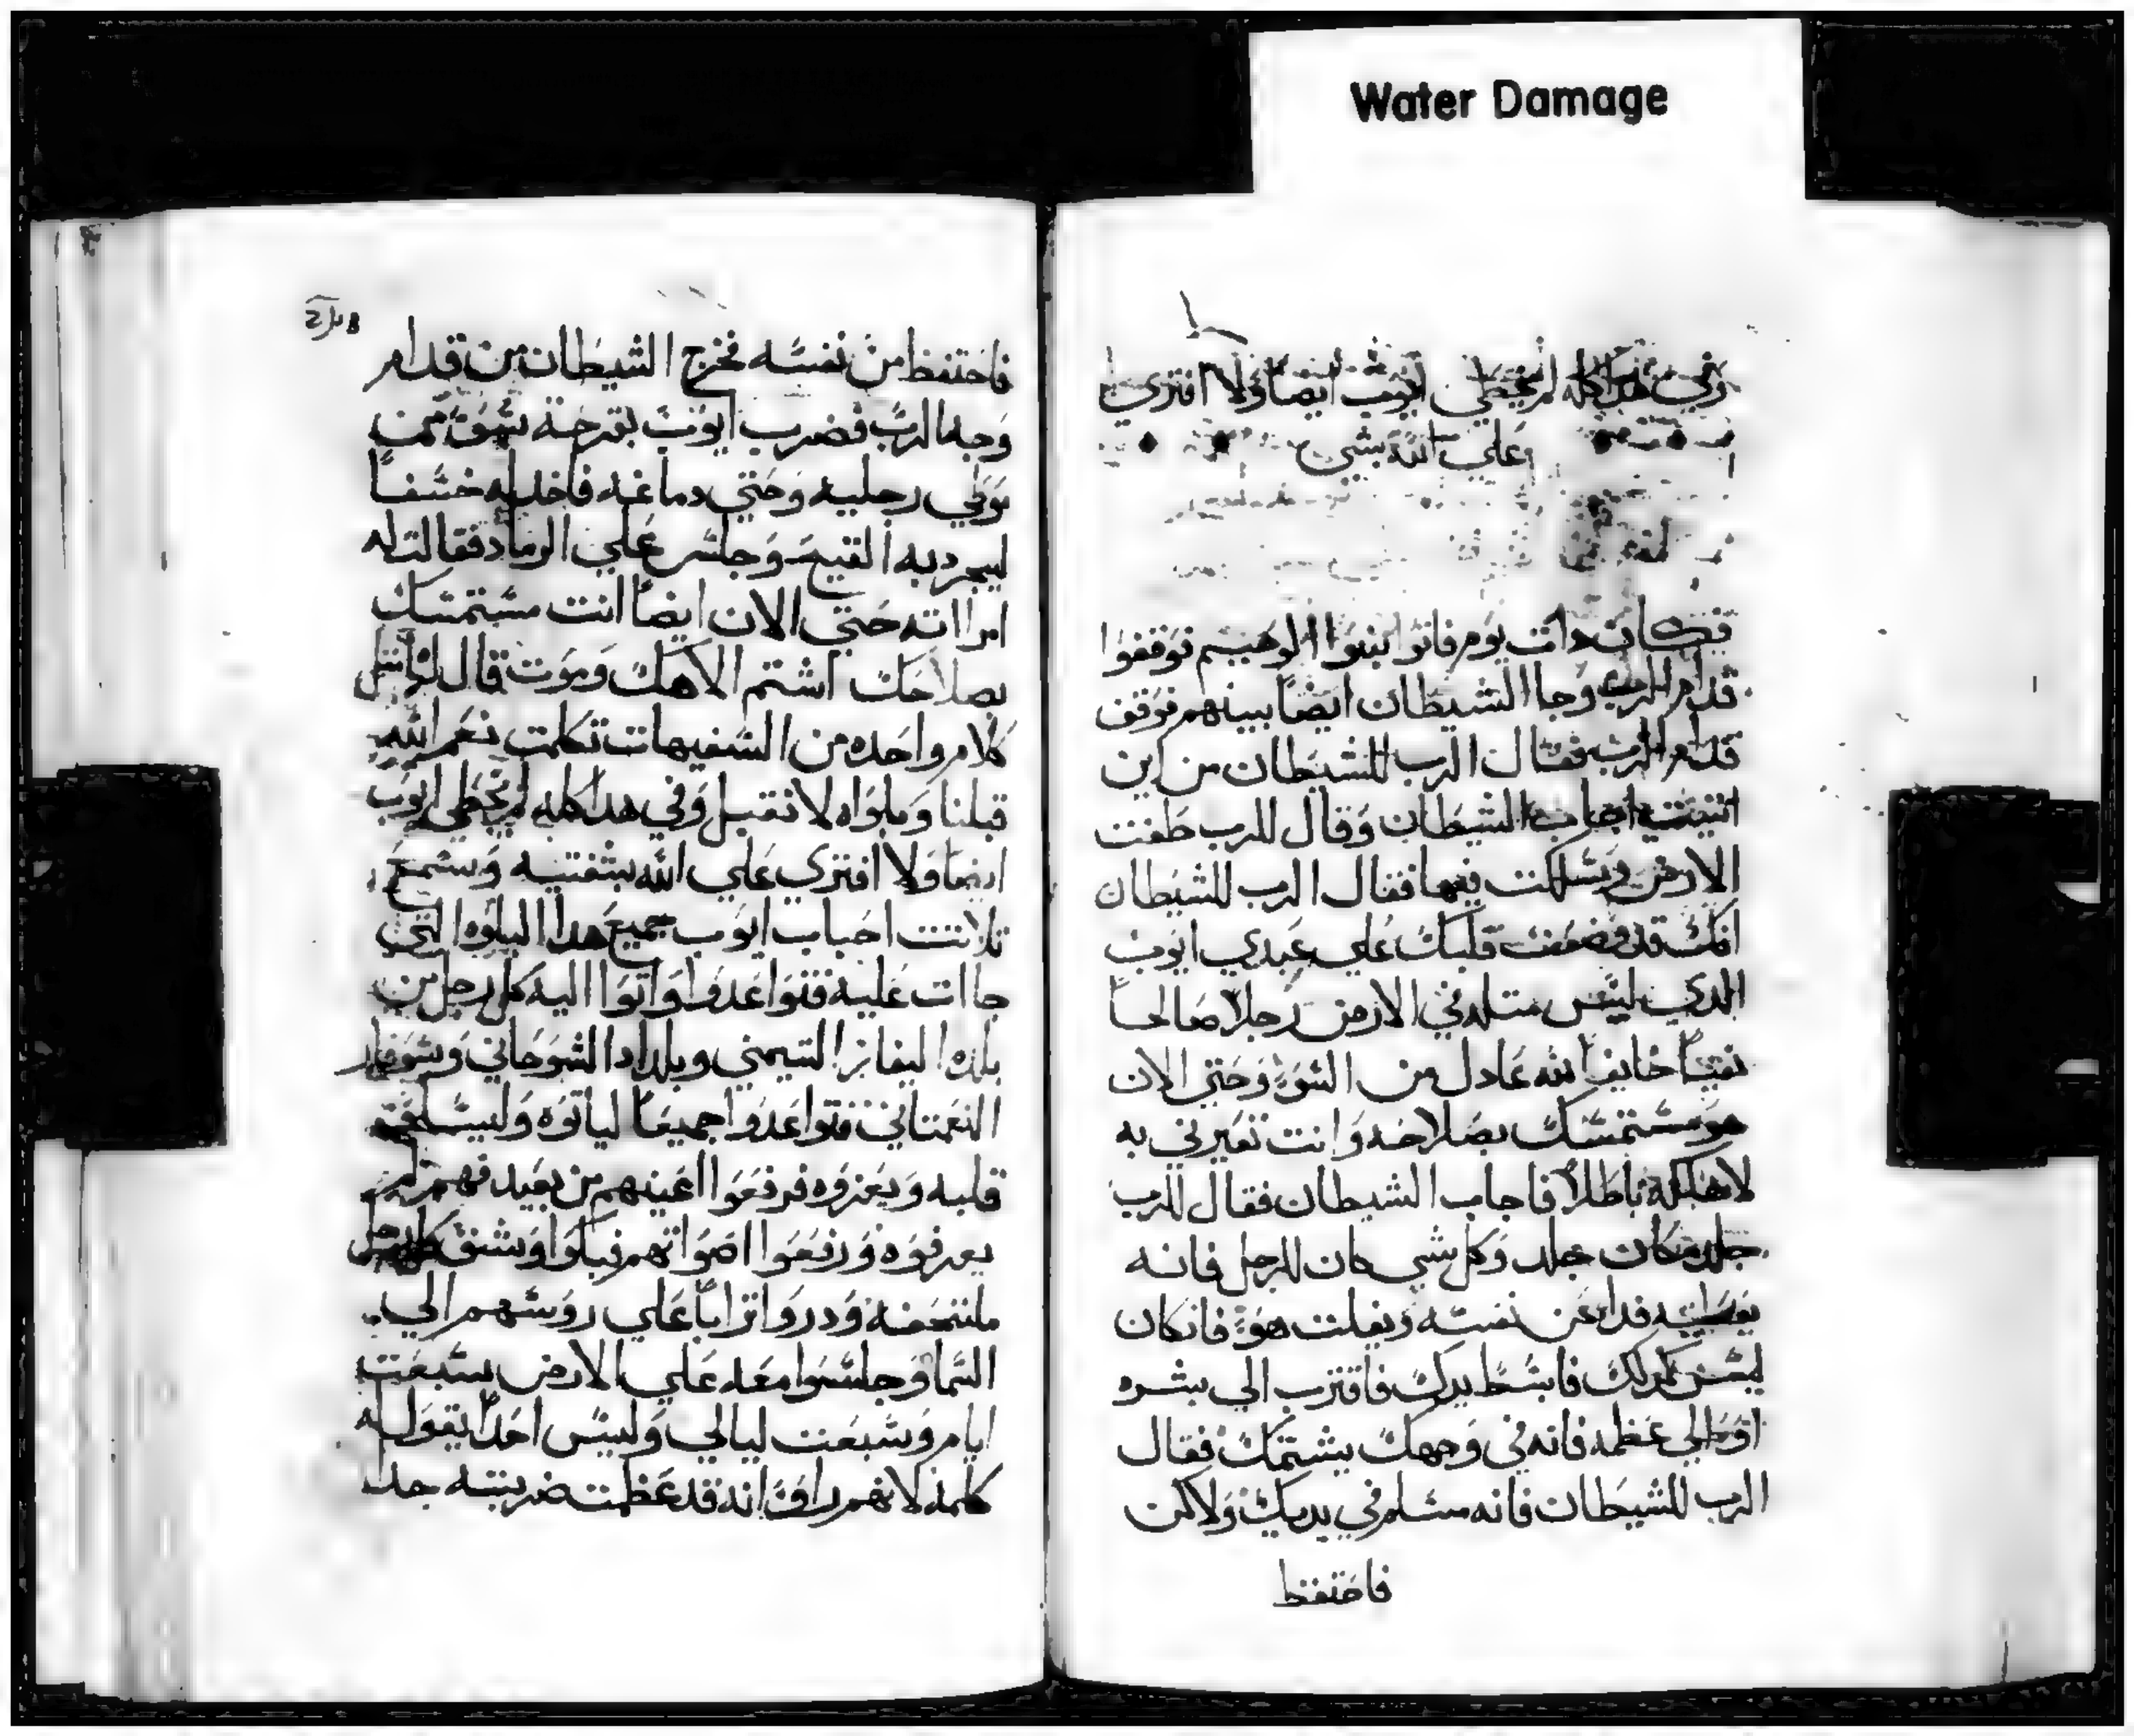 Water Damage
وفي هدا كله لم يخطي ايوب ايضا ولا افتري
علي الله بشي
فكان دات يوم فاتوا بنوا الوهيم فوقفوا
قدام الرب وجا الشيطان ايضا بينهم فوقف
قدام الرب فقال الرب للشيطان من اين
اتيت اجاب الشيطان وقال للرب طفت
الارض وسلكت فيها فقال الرب للشيطان
انك قد وضعت قلبك علي عبدي ايوب
الدي ليس متله في الارض رجلا صالحا
نقيا خايفا لله عادل من السو وحتي الان
هو مستمسك بصلاحه وانت تغيرني به
لاهلكه باطلا فاجاب الشيطان فقال للرب
جلد مكان جلد وكل شي كان للرجل فانه
يعطيه فدا عن نفسه ويفلت هو فان كان
ليس كدلك فابسط يدك فاقترب الي بشره
او الي عظمه فانه في وجهك يشتمك فقال
الرب للشيطان فانه مسلم في يديك ولاكن
فاحتفظ
فاحتفظ من نفسه فخرج الشيطان من قدام
وجه الرب فضرب ايوب بقرحة سو من
موطي رجليه وحتي دماغه فاخد له خسفا
ليجرد به القيح وجلس علي الرماد فقالت له
امراته حتي الان ايضا انت مستمسك
بصلاحك اشتم الاهك وموت قال لها متل
كلام واحده من السفيهات تكلمت نعم الله
قبلنا وبلواه لا نقبل وفي هدا كله لم يخطي ايوب
ايضا ولا افتري علي الله بشفتيه وسمع
تلاتت احباب ايوب جميع هدا البلوه التي
جاات عليه فتواعدوا واتوا اليه كل رجل من
بلده اليفاز التيمني وبلداد الشوحاني وسوفار
النعمتاني فتواعدوا جميعا لياتوه وليسلوه
قلبه ويعزوه فرفعوا اعينهم من بعيد فهم لم
يعرفوه ورفعوا اصواتهم فبكوا وشق كل رجل
ملتحفه ودروا ترابا علي روسهم الي
السما وجلسوا معه علي الارض سبعت
ايام وسبعت ليالي وليس احدا يقول له
كلمه لانهم راوا انه قد عظمت ضربته جدا